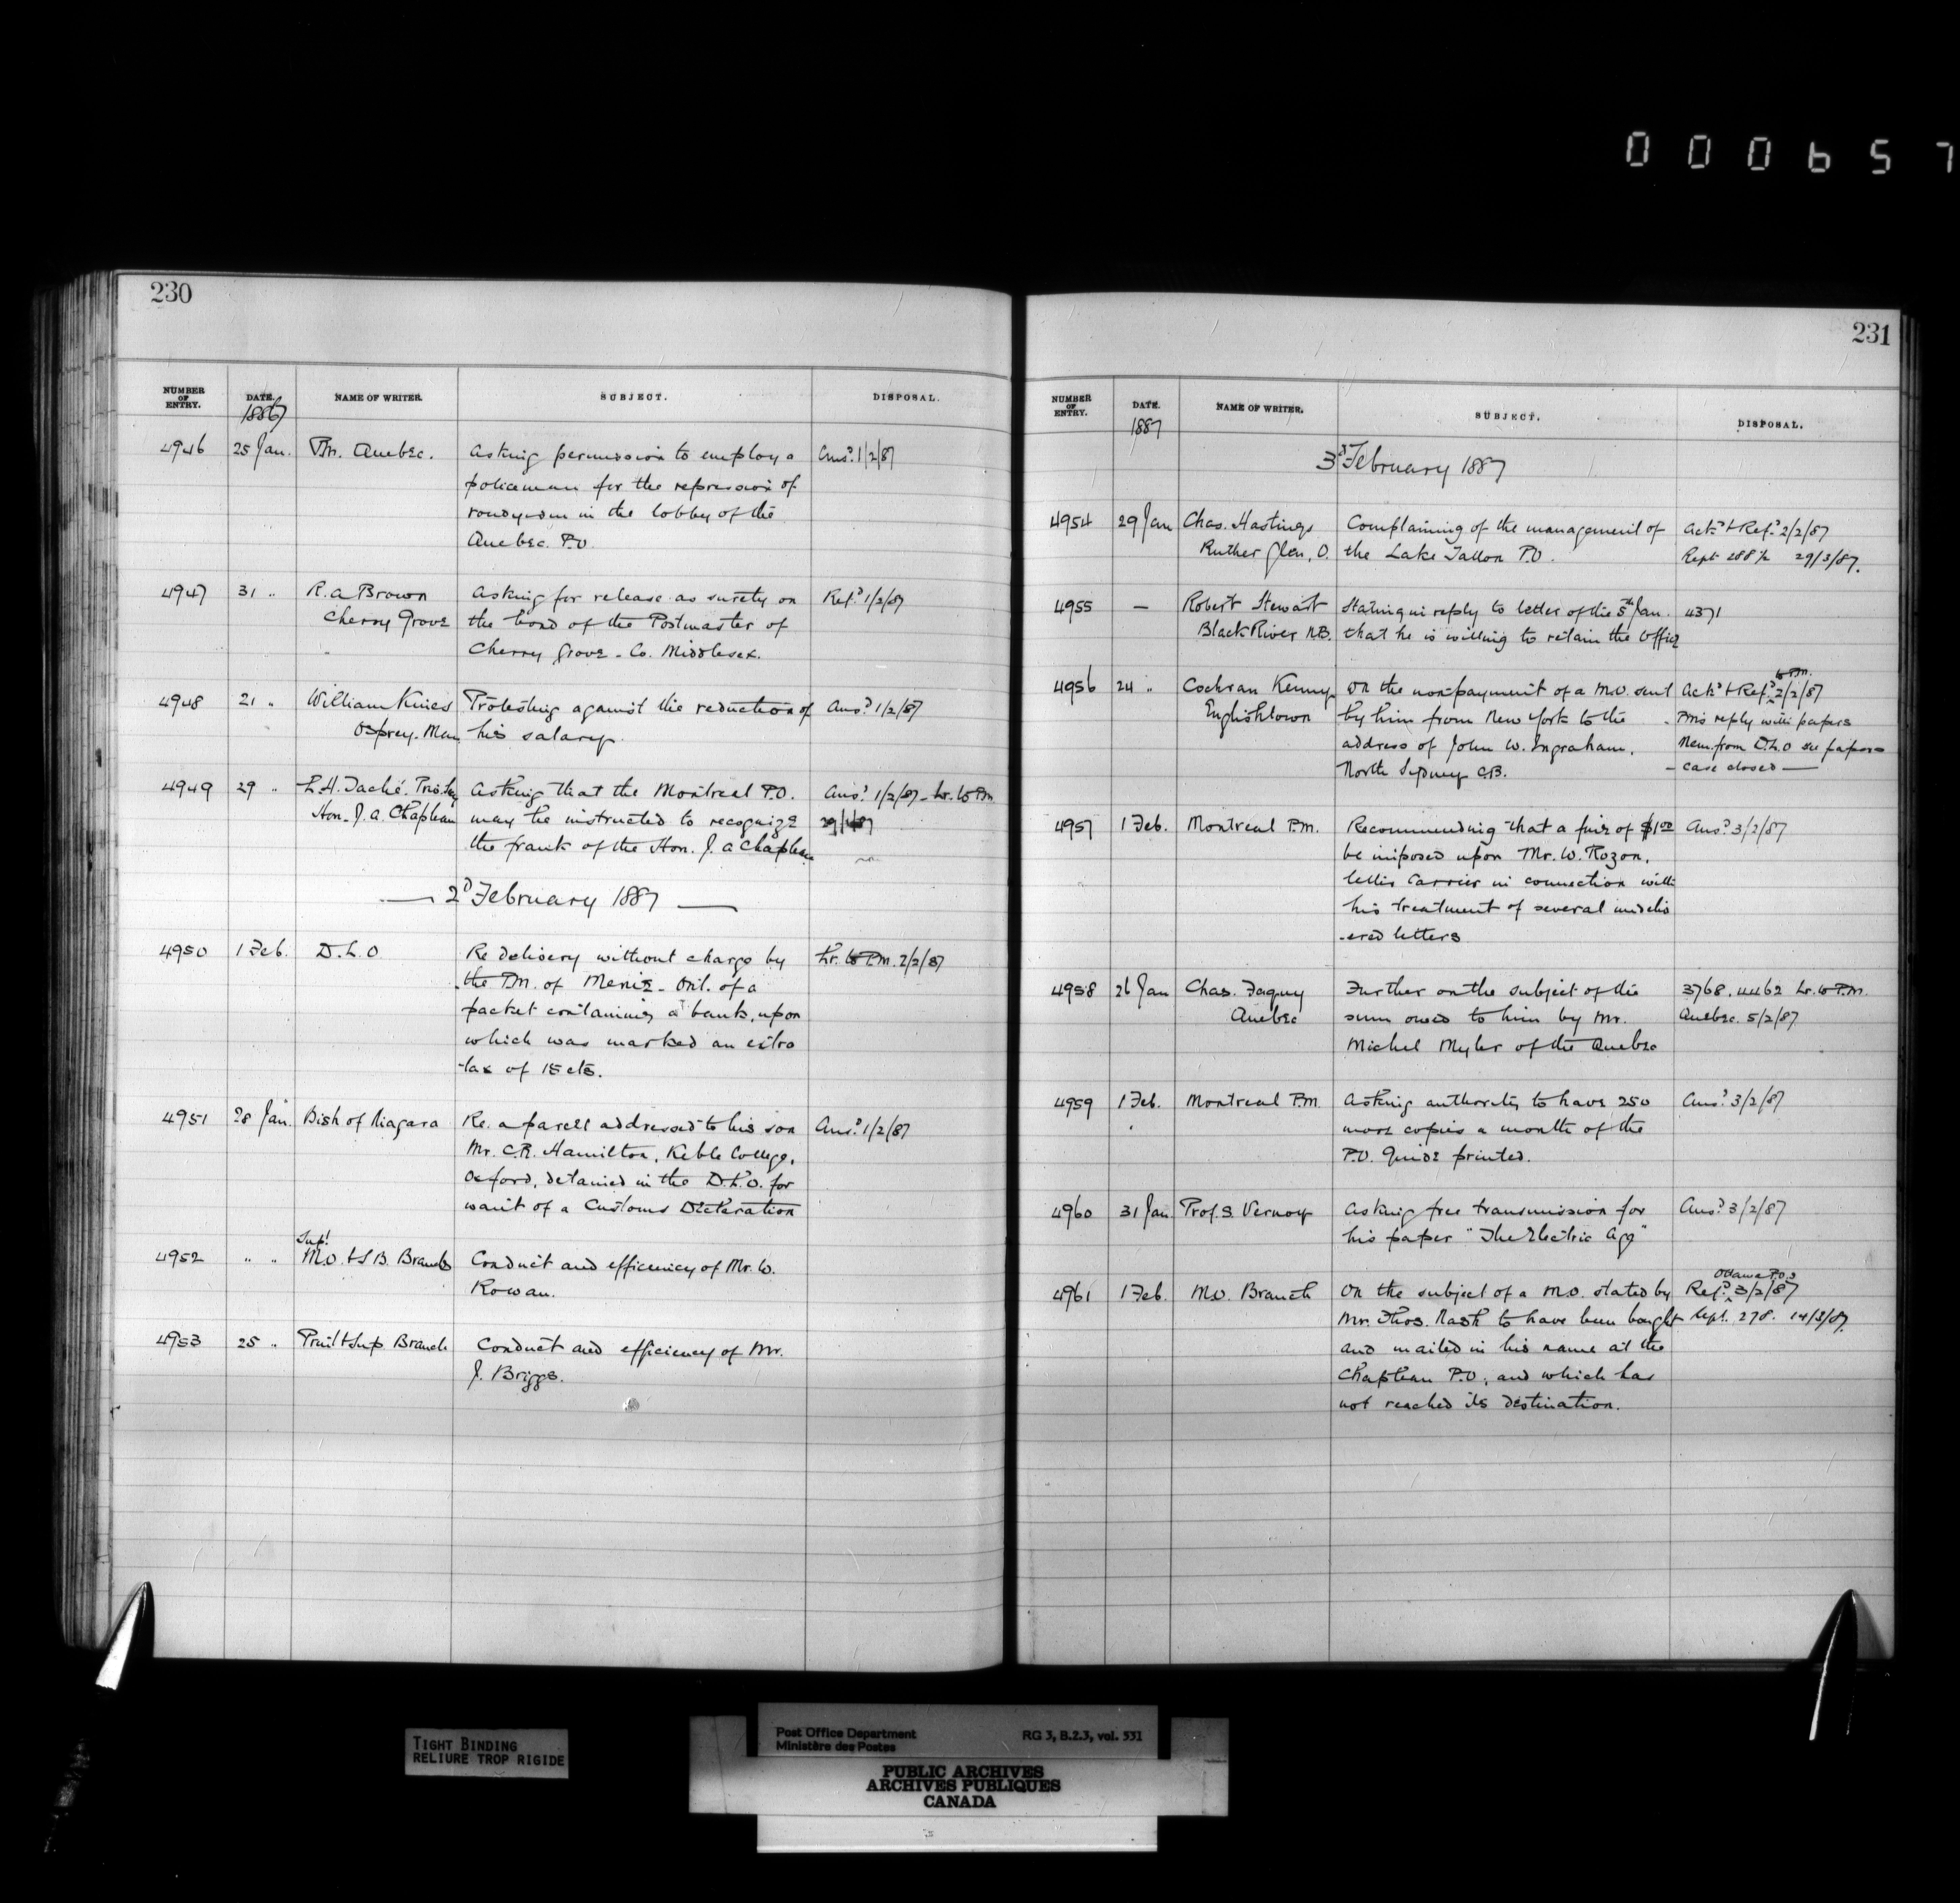 000657
230
NUMBER OF ENTRY. DATE. NAME OF WRITER. SUBJECT. DISPOSAL.
1887
4946 25 Jan. P.M. Quebec. Asking permission to employ a Ansd. 1/2/87
policeman for the repression of
rowdyism in the lobby of the
Quebec. P.O.
4947 31 " R. A Brown Asking for release as surety on Refd. 1/2/87
Cherry Grove the bond of the Postmaster of
Cherry Grove - Co. Middlesex.
4948 21 " William Kines Protesting against the reduction of Ansd. 1/2/87
Osprey. Man his salary.
4949 29 " L.H. Taché. Priv. Sey Asking that the Montreal P.O. Ansd. 1/2/87 - Lr. to P.M
Hon. J. A. Chapleau may be instructed to recognize
the frank of the Hon. J. A Chapleau
— 2d February 1887 —
4950 1 Feb. D.L.O Re delivery without charge by Lr. to P.M. 2/2/87
the P.M. of Menie - Ont. of a
packet containing a bank, upon
which was marked an extra
tax of 15 cts.
4951 28 Jan. Bish of Niagara Re. a parcel addressed to his son Ansd. 1/2/87
Mr. C.R. Hamilton, Keble College,
Oxford, detained in the D.L.O. for
want of a Customs Declaration
Supt.
4952 " " M.O. & S B. Branch Conduct and efficiency of Mr. W.
Rowan.
4953 25 " Print & Sup Branch Conduct and efficiency of Mr.
J. Briggs.
231
NUMBER OF ENTRY. DATE. NAME OF WRITER. SUBJECT. DISPOSAL.
1887
3d February 1887
4954 29 Jan Chas. Hastings Complaining of the management of Ackd. & Refd. 2/2/87
Ruther Glen, O. the Lake Tallon P.O. Rept 29/3/87.
4955 — Robert Stewart Stating in reply to letter of the 5th Jan. 4371
Black River N.B. that he is willing to retain the office
to P.M.
4956 24 " Cochran Kenny On the non-payment of a M.O. sent Ackd. & Refd. 2/2/87
Englishtown by him from New York to the - PM's reply with papers
address of John W. Ingraham, Mem. from D.L.O see papers
North Sydney C.B. - Case closed —
4957 1 Feb. Montreal P.M. Recommending that a fine of $1.00 Ansd. 3/2/87
be imposed upon Mr. W. Rozon,
letter Carrier in connection with
his treatment of several misdeliv
-ered letters
4958 26 Jan Chas. Faguy Further on the subject of the 3768. 4462 Lr. to P.M.
Quebec sum owed to him by Mr. Quebec. 5/2/87
Michel Myler of the Quebec
4959 1 Feb. Montreal P.M. Asking authority to have 250 Ansd. 3/2/87
more copies a month of the
P.O. Guide printed.
4960 31 Jan Prof. S. Vernoy Asking free transmission for Ansd. 3/2/87
his paper "The Electric Age"
Ottawa P.O.
4961 1 Feb. M.O. Branch On the subject of a M.O. stated by Refd. 3/2/87
Mr. Thos. Nash to have been bought Rept. 278. 14/3/87.
and mailed in his name at the
Chapleau P.O., and which has
not reached its destination.
TIGHT BINDING
RELIURE TROP RIGIDE
Post Office Department RG 3, B.2.3, vol. 531
Ministère des Postes
PUBLIC ARCHIVES
ARCHIVES PUBLIQUES
CANADA